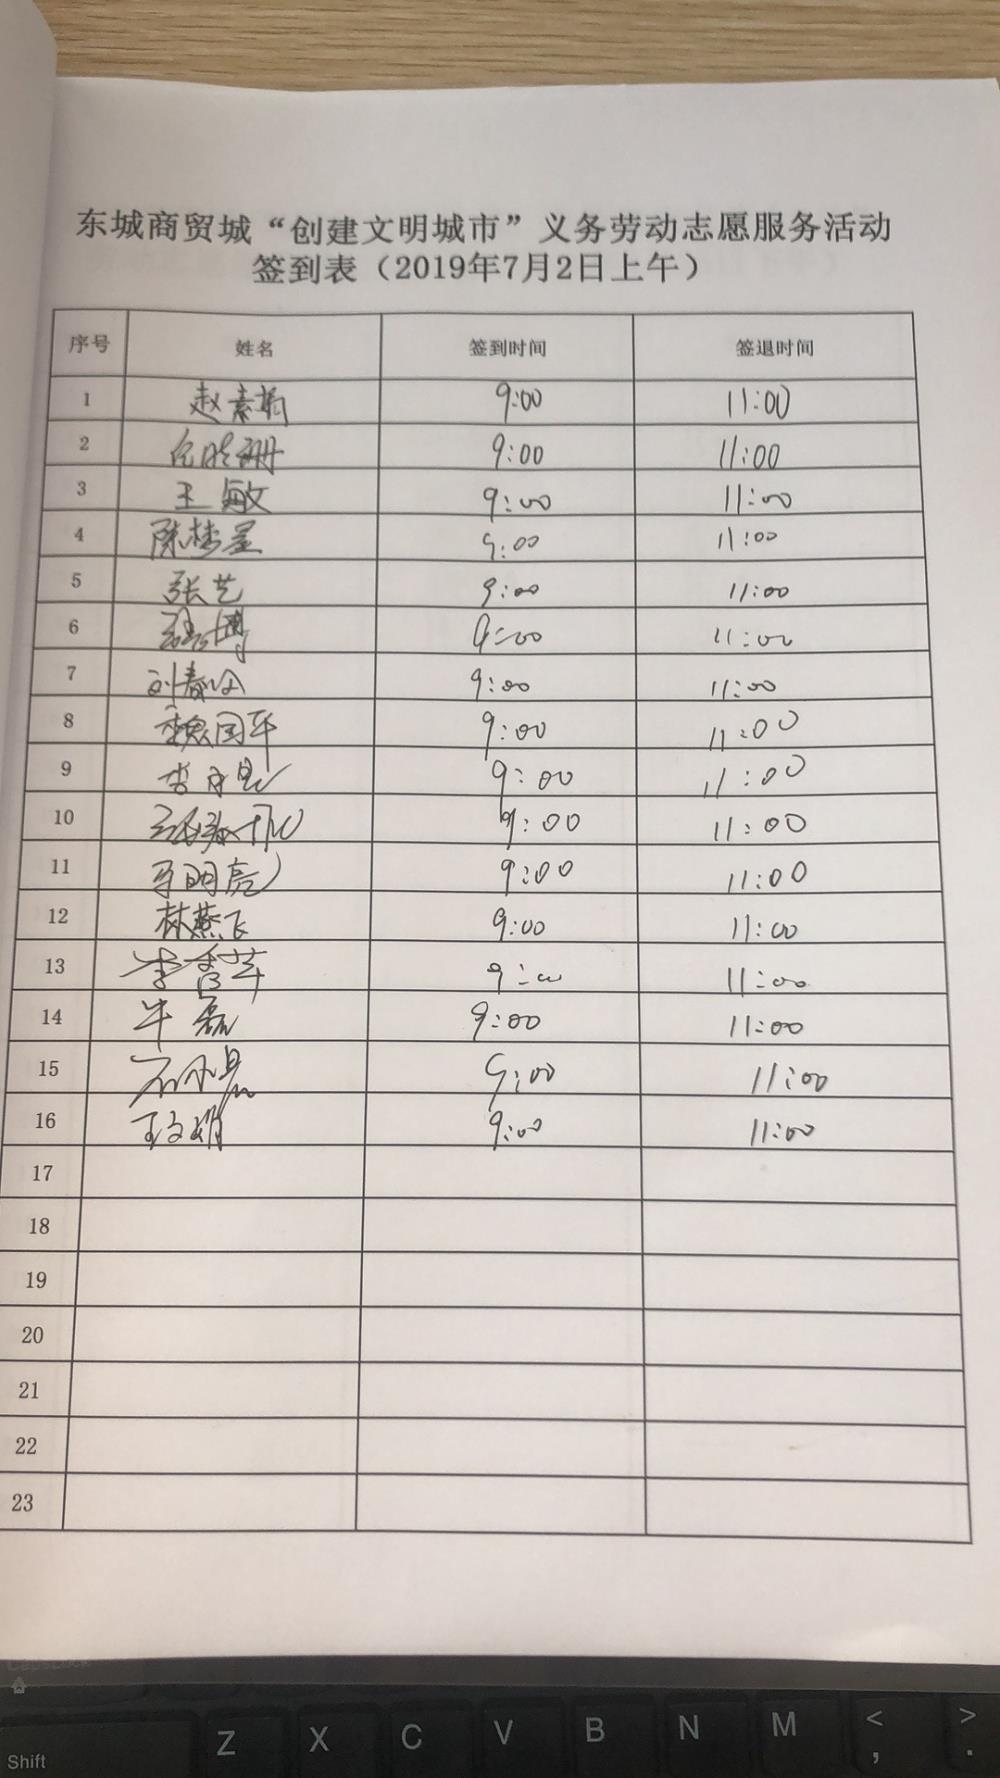 东城商贸城“创建文明城市”义务劳动志愿服务活动
签到表（2019年7月2日上午）
序号 姓名 签到时间 签退时间
1 赵素娟 9:00 11:00
2 9:00 11:00
3 王敏 9:00 11:00
4 陈梦星 9:00 11:00
5 张艺 9:00 11:00
6 9:00 11:00
7 刘春 9:00 11:00
8 魏国平 9:00 11:00
9 李 9:00 11:00
10 9:00 11:00
11 李明亮 9:00 11:00
12 林燕飞 9:00 11:00
13 李香苹 9:00 11:00
14 牛磊 9:00 11:00
15 石小晃 9:00 11:00
16 王文娟 9:00 11:00
17
18
19
20
21
22
23
CapsLock
Shift Z X C V B N M < , > .